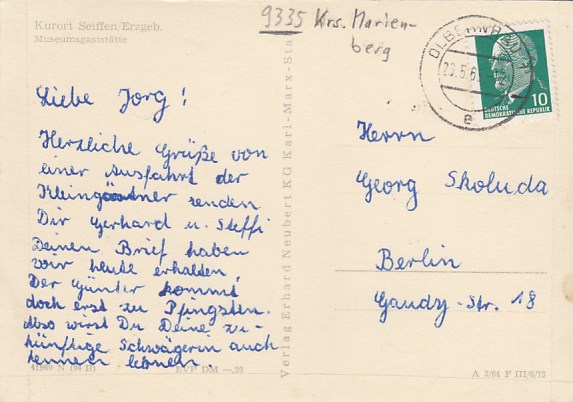 Kurort Seiffen/Erzgeb.
Museumsgaststätte
9335 Krs. Marien-
berg
Liebe Jorg!
Herzliche Grüße von
einer Ausfahrt der
Kleingärtner senden
Dir Gerhard u. Steffi
Deinen Brief haben
wir heute erhalten,
Der Günter kommt
doch erst zu Pfingsten.
Also wirst Du Deine zu-
künftige Schwägerin auch
kennen lernen.
41969 N (94 B) EVP DM —,20
Verlag Erhard Neubert KG Karl-Marx-Sta
OLBERNHAU 1
e
10
DEUTSCHE
DEMOKRATISCHE REPUBLIK
Herrn
Georg Skoluda
Berlin
Gaudy-Str. 18
A 3/64 F III/6/15